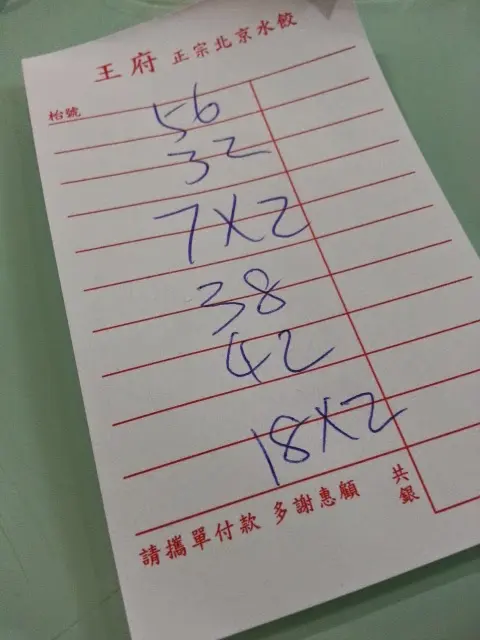 王府 正宗北京水餃
枱號
56
32
7X2
38
42
18X2
請攜單付款 多謝惠顧 共銀